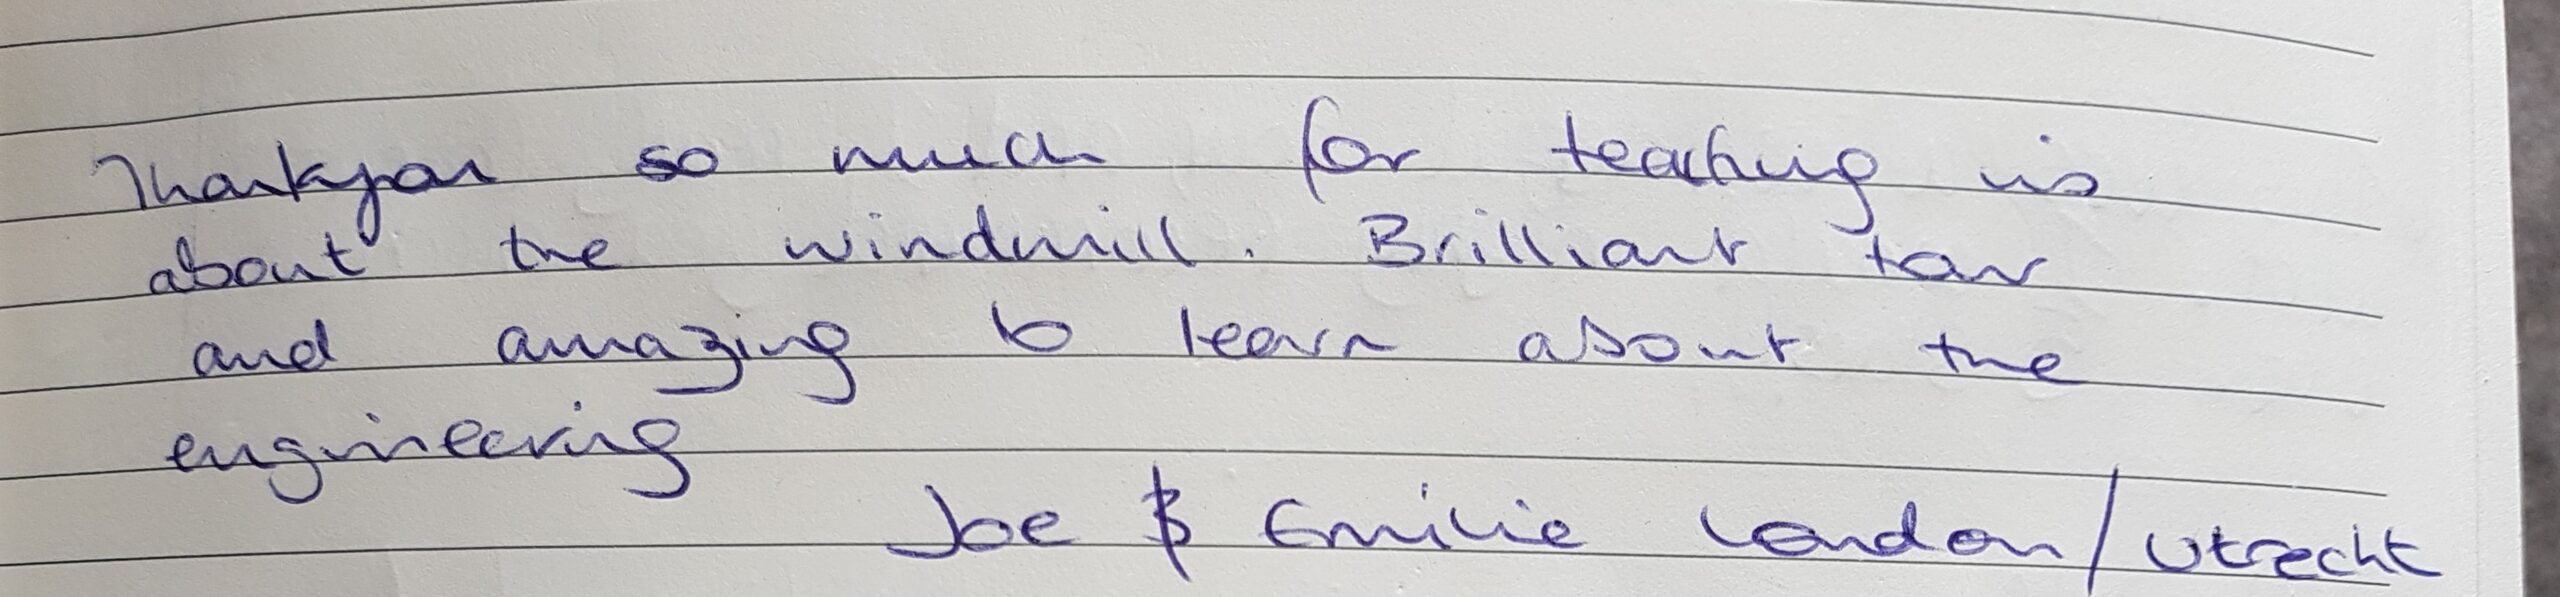 Thankyou so much for teaching us
about the windmill. Brilliant tour
and amazing to learn about the
engineering
Joe & Emilie London/Utrecht